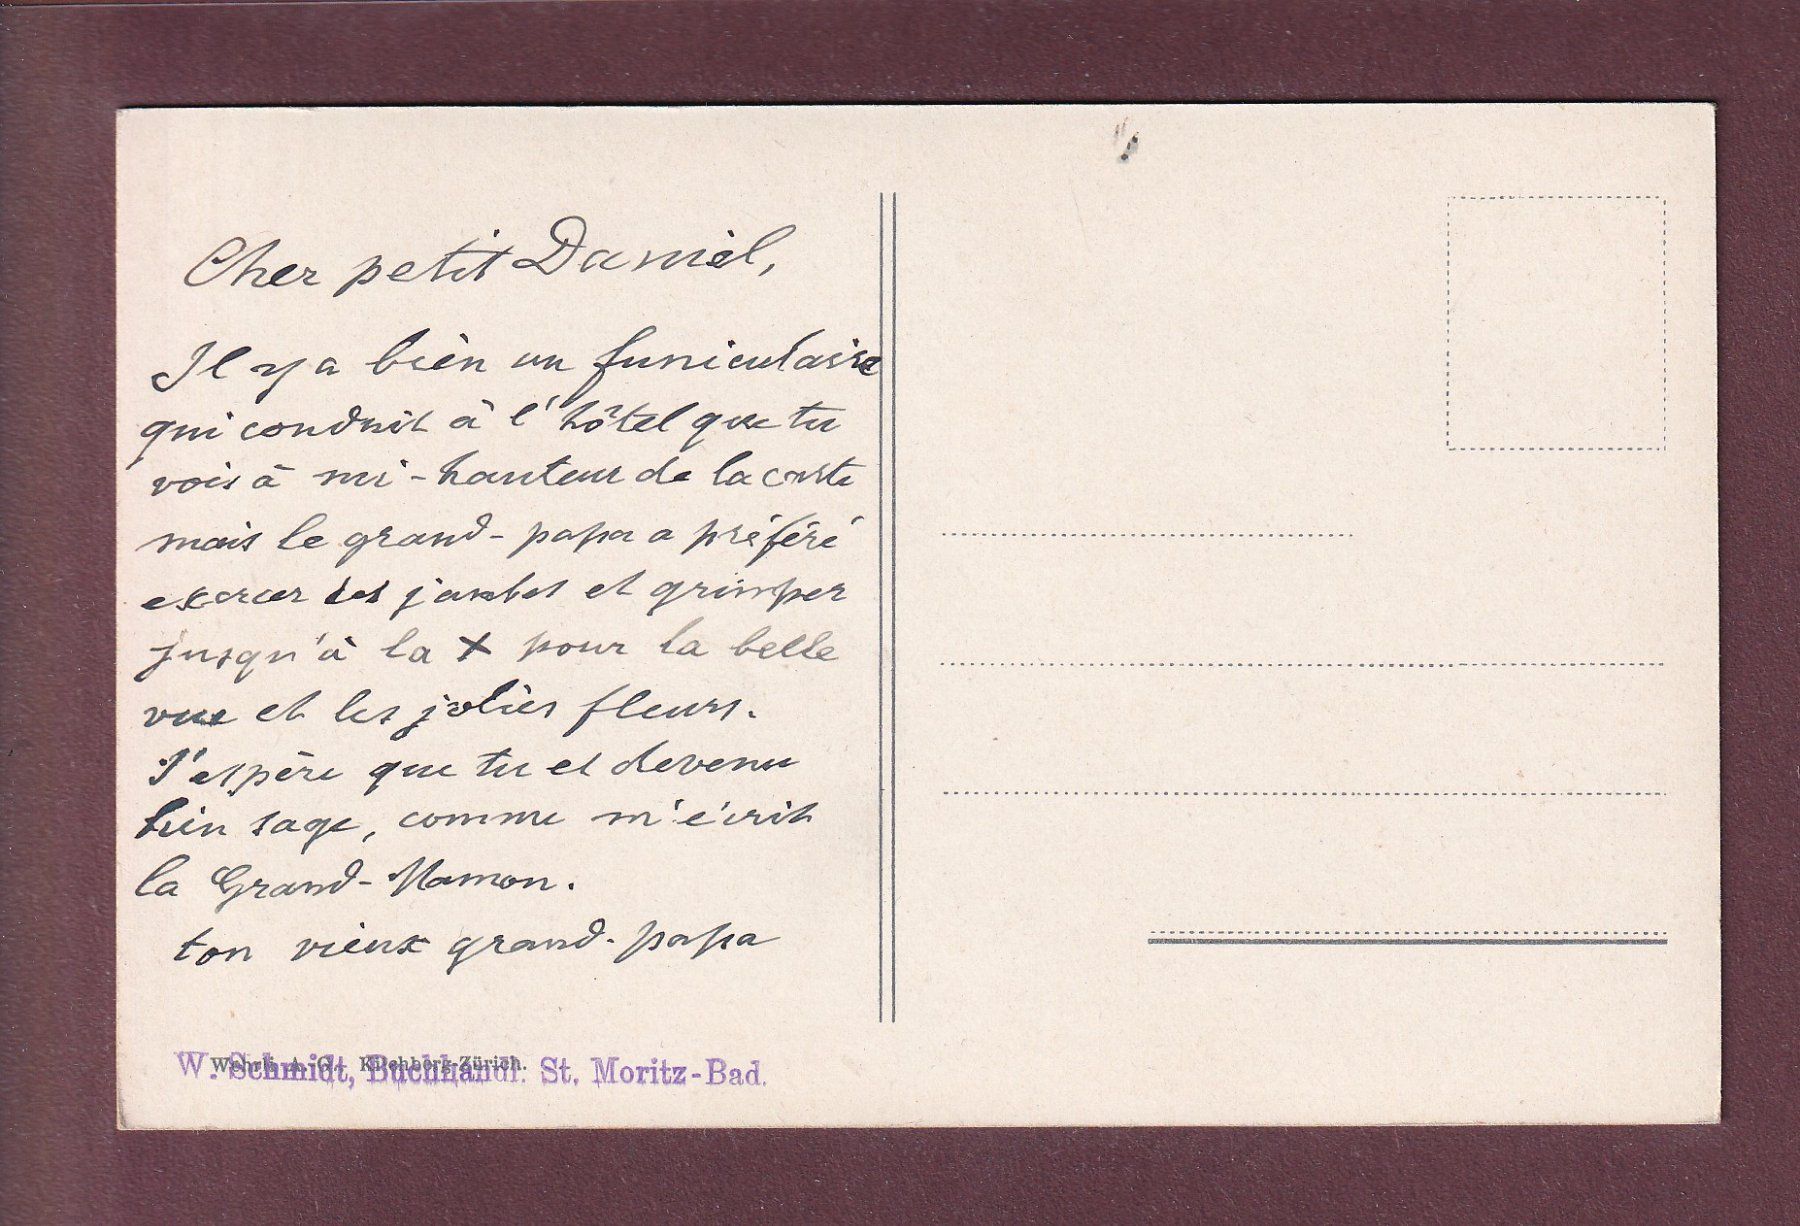 Cher petit Daniel,
Il y a bien un funiculaire
qui conduit à l'hôtel que tu
vois à mi-hauteur de la carte
mais le grand-papa a préféré
exercer ses jambes et grimper
jusqu'à la X pour la belle
vue et les jolies fleurs.
J'espère que tu es devenu
bien sage, comme m'écrit
la Grand-Maman.
ton vieux grand-papa
Wehrli A.-G., Kilchberg-Zürich.
W. Schmidt, Buchhandl. St. Moritz-Bad.